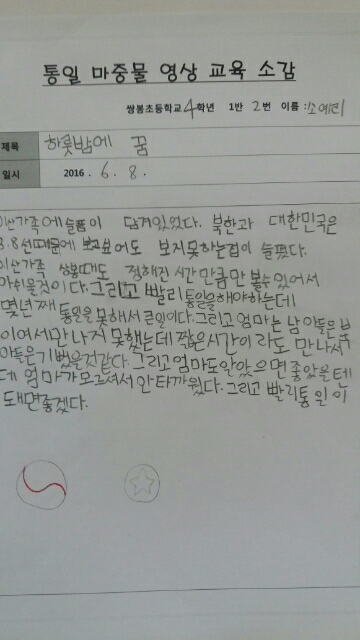 통일 마중물 영상 교육 소감
쌍봉초등학교 4학년 1반 2번 이름 : 소예리
제목 하룻밤에 꿈
일시 2016 . 6 . 8 .
이산가족에 슬픔이 담겨있었다. 북한과 대한민국은
3.8선때문에 보고싶어도 보지못하는점이 슬펐다.
이산가족 상봉때도 정해진 시간 만큼만 볼수 있어서
아쉬울것이다. 그리고 빨리 통일을해야하는데
몇년째 통일을 못해서 큰일이다. 그리고 엄마는 남 아들은 북
이여서 만나지 못했는데 짧은시간이라도 만나서
아들은기뻤을것같다. 그리고 엄마도알았으면좋았을텐
데 엄마가모르셔서 안타까웠다. 그리고 빨리통일이
돼면좋겠다.